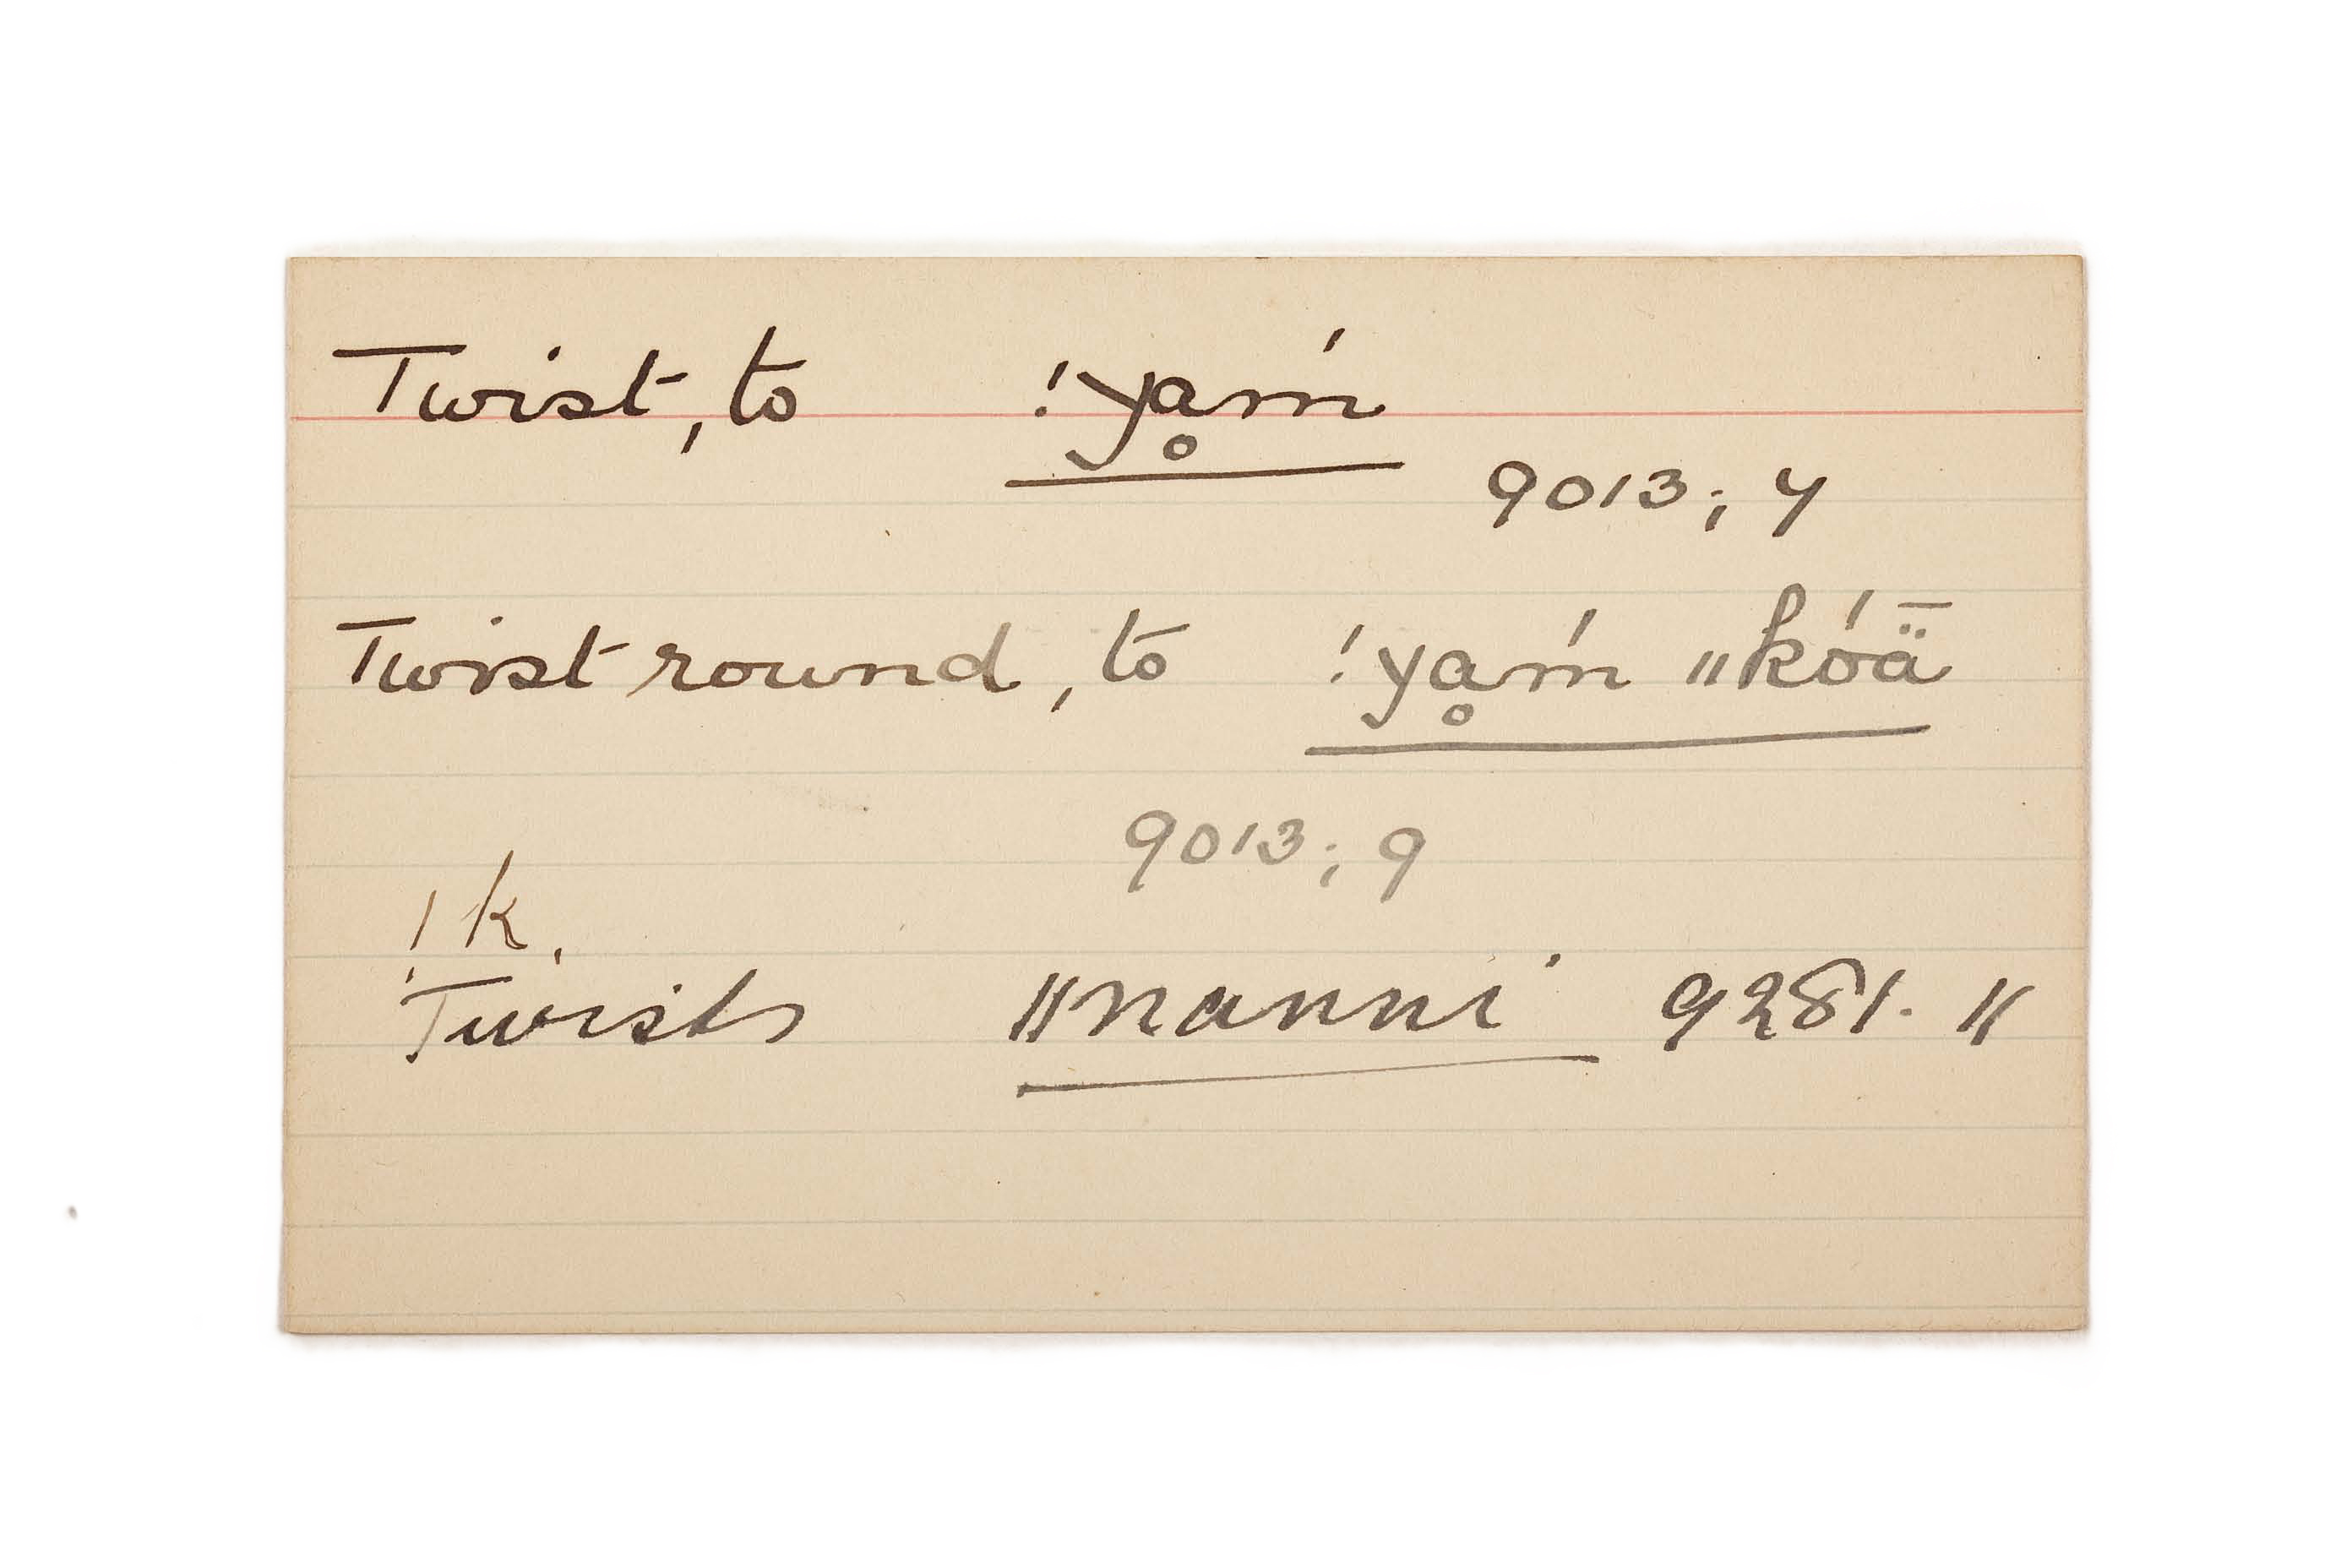 Twist, to !yḁḿ
9013; 4
Twist round, to !yḁḿ ǁkóǟ
9013; 9
!k.
Twists ǁnanni 9281. 11